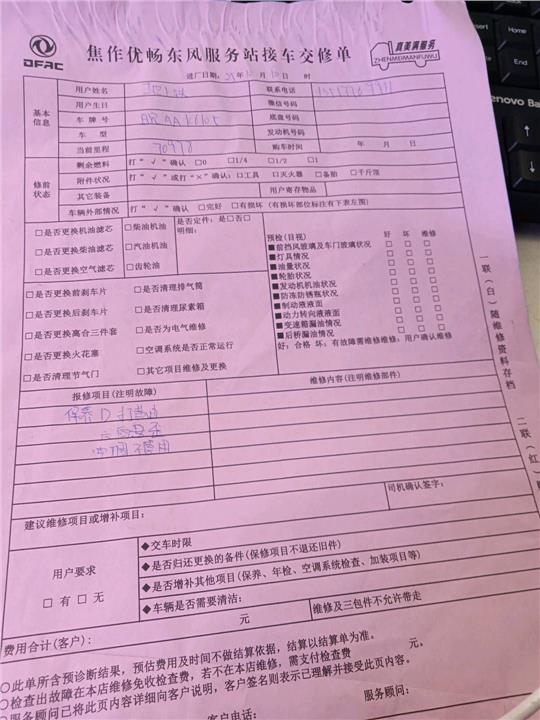 DFAC
焦作优畅东风服务站接车交修单
真美满服务
ZHENMEIMANFUWU
进厂日期: 年 月 日 时
基本信息
用户姓名 联系电话
用户生日 微信号码
车牌号 底盘号码
车型 发动机号码
当前里程 购车时间 年 月 日
修前状态
剩余燃料 打“√”确认 □0 □1/4 □1/2 □1
附件状况 打“√”或打“×”确认: □工具 □灭火器 □备胎 □千斤顶
其它装备 用户寄存物品
车辆外部情况 打“√”确认 □完好 □有损坏 (有损坏部位标注有下表左图)
□是否更换机油滤芯 □柴油机油 是否定件: 是□否□
明细:
□是否更换柴油滤芯 □汽油机油
□是否更换空气滤芯 □齿轮油
□是否更换前刹车片 □是否清理排气筒
□是否更换后刹车片 □是否清理尿素箱
□是否更换离合三件套 □是否为电气维修
□是否更换火花塞 □空调系统是否正常运行
□是否清理节气门 □其它项目维修及更换
预检(目视) 好 坏 维修
■前挡风玻璃及车门玻璃状况 □ □ □
■灯具情况 □ □ □
■油量状况 □ □ □
■轮胎状况 □ □ □
■发动机机油状况 □ □ □
■防冻防锈瓶状况 □ □ □
■制动液液面 □ □ □
■动力转向液液面 □ □ □
■变速箱漏油情况 □ □ □
■后桥漏油情况 □ □ □
好: 合格 坏: 有故障需维修维修: 用户确认维修
一联(白)随维修资料存档
二联(红)
报修项目(注明故障) 维修内容(注明维修部件)
保养
建议维修项目或增补项目:
司机确认签字:
用户要求
□有 □无
◆交车时限
◆是否归还更换的备件(保修项目不退还旧件)
◆是否增补其他项目(保养、年检、空调系统检查、加装项目等)
◆车辆是否需要清洁:
元 维修及三包件不允许带走
费用合计(客户): 元。
○此单所含预诊断结果，预估费用及时间不做结算依据，结算以结算单为准。
○检查出故障在本店维修免收检查费，若不在本店维修，需支付检查费 元。
○服务顾问已将此页内容详细向客户说明，客户签名则表示已理解并接受此页内容。
客户电话: 服务顾问:
Ctrl
novo